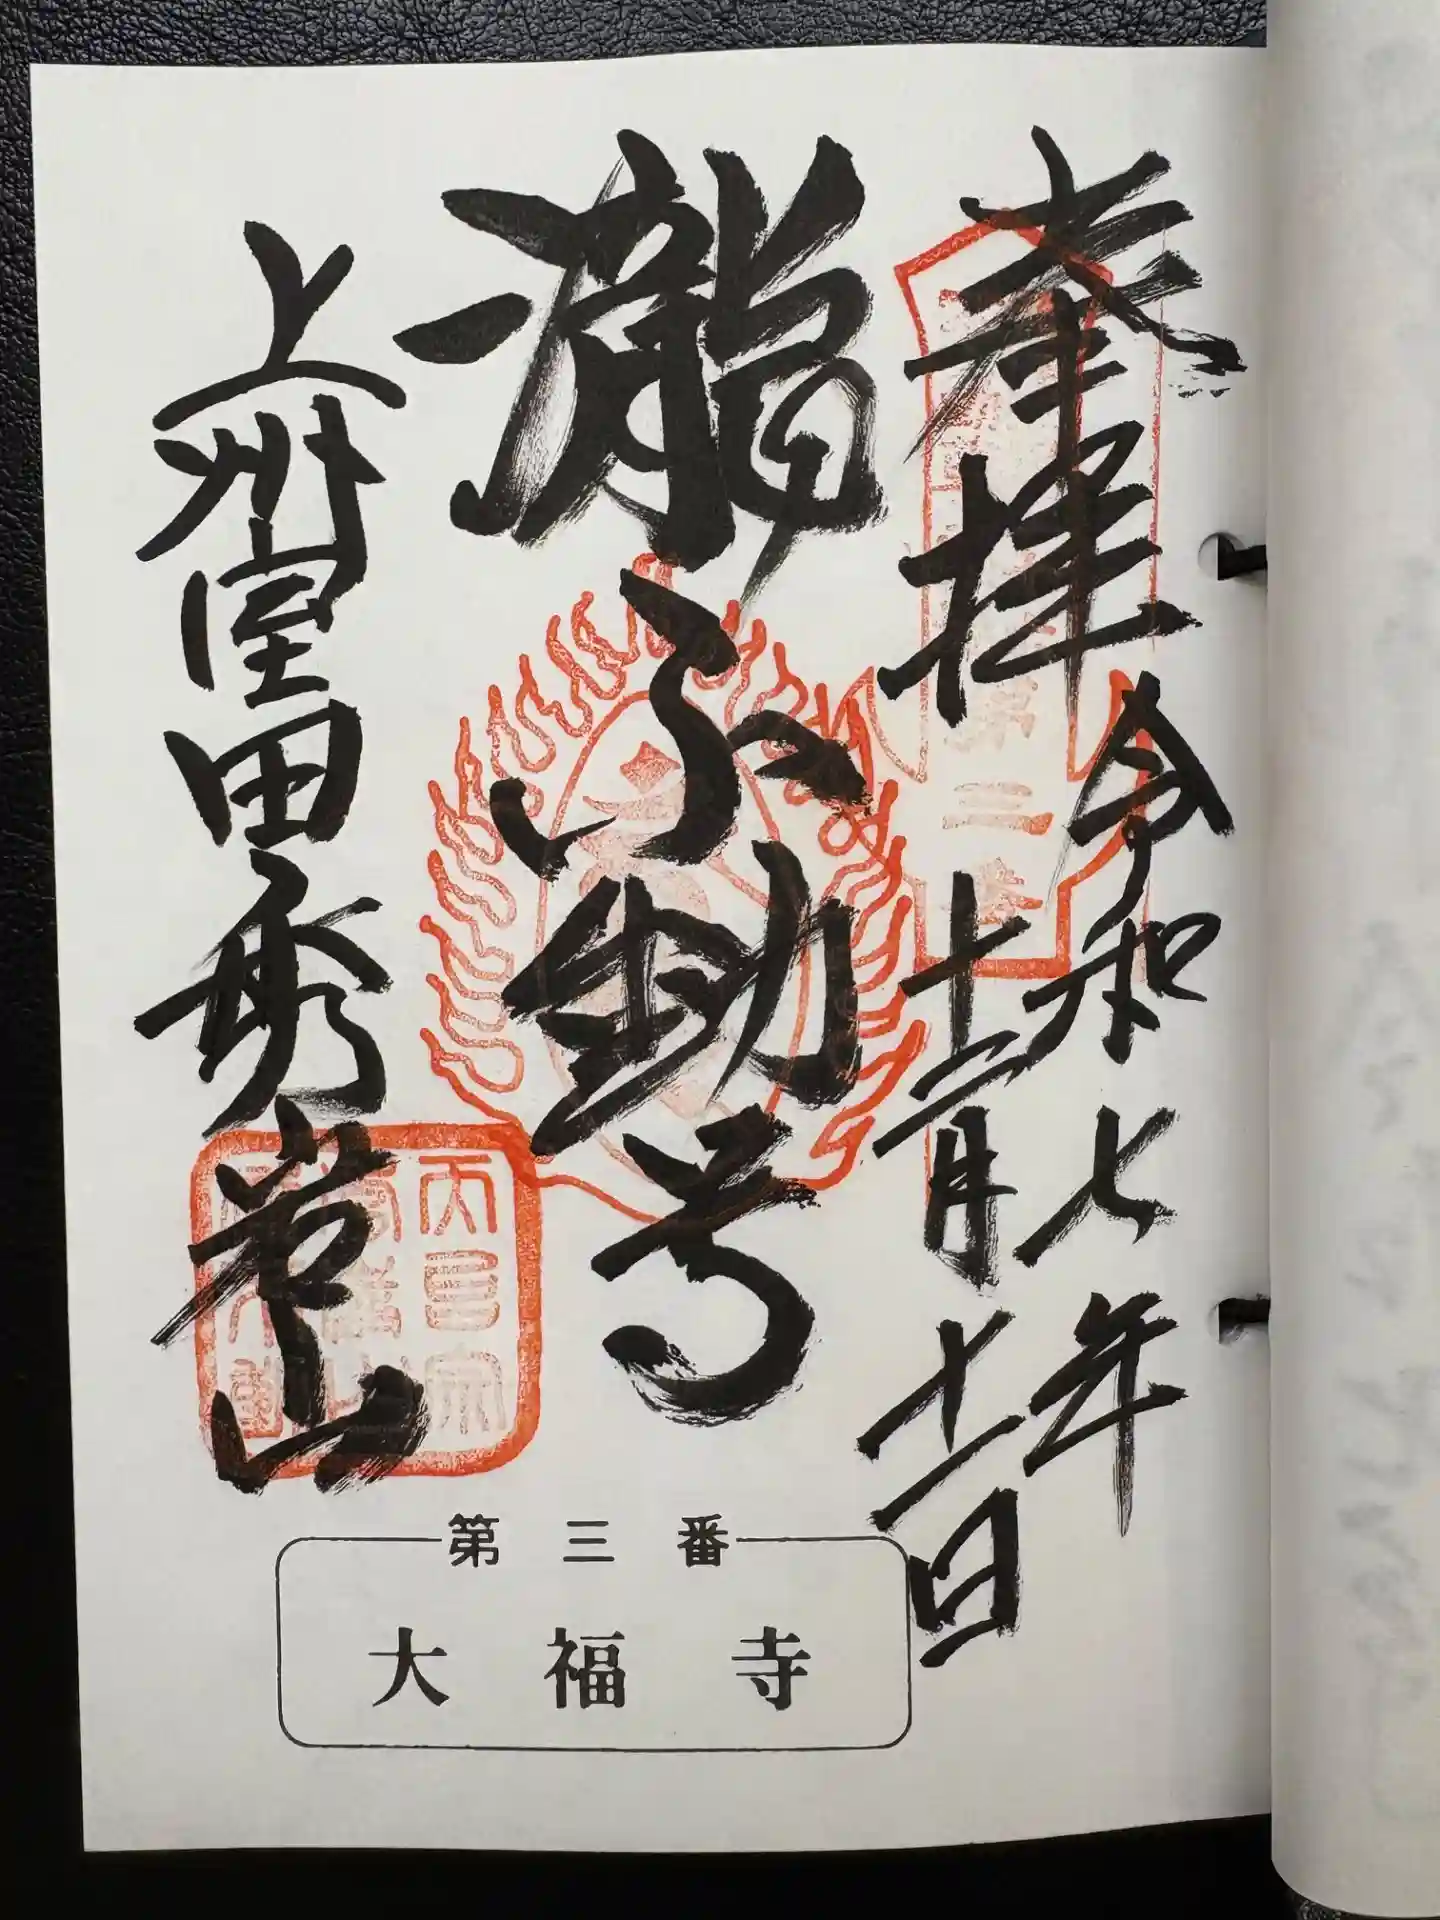 奉拝
令和七年
十一月十一日
瀧不動尊
上州室田
第三番
第三番
大福寺